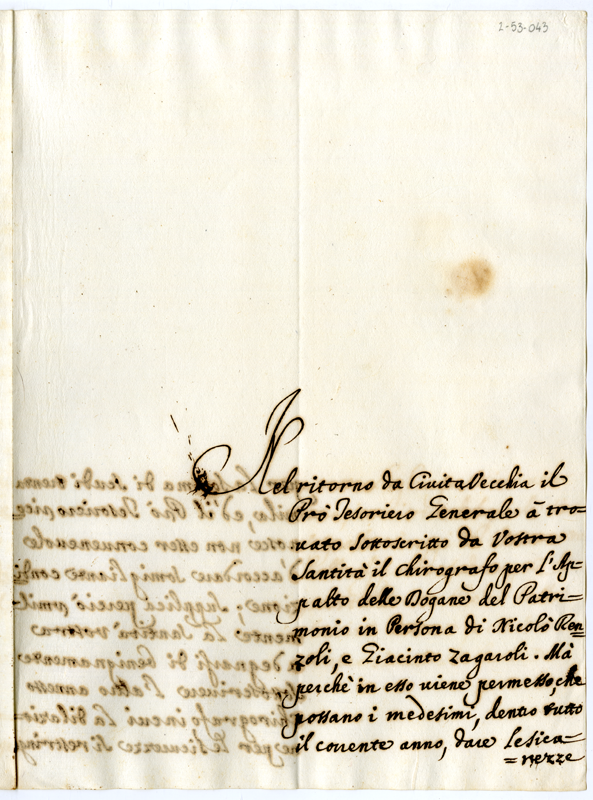 2-53-043
Nel ritorno da Civita Vecchia il
Prò Tesoriero Generale à tro=
vato sottoscritto da Vostra
Santità il Chirografo per l'Ap=
palto delle Dogane del Patri=
monio in Persona di Nicolò Ron=
zoli, e Giacinto Zagaroli. Mà
perchè in esso viene permesso, che
possano i medesimi, dentro tutto
il corrente anno, dare le sica=
=rezze